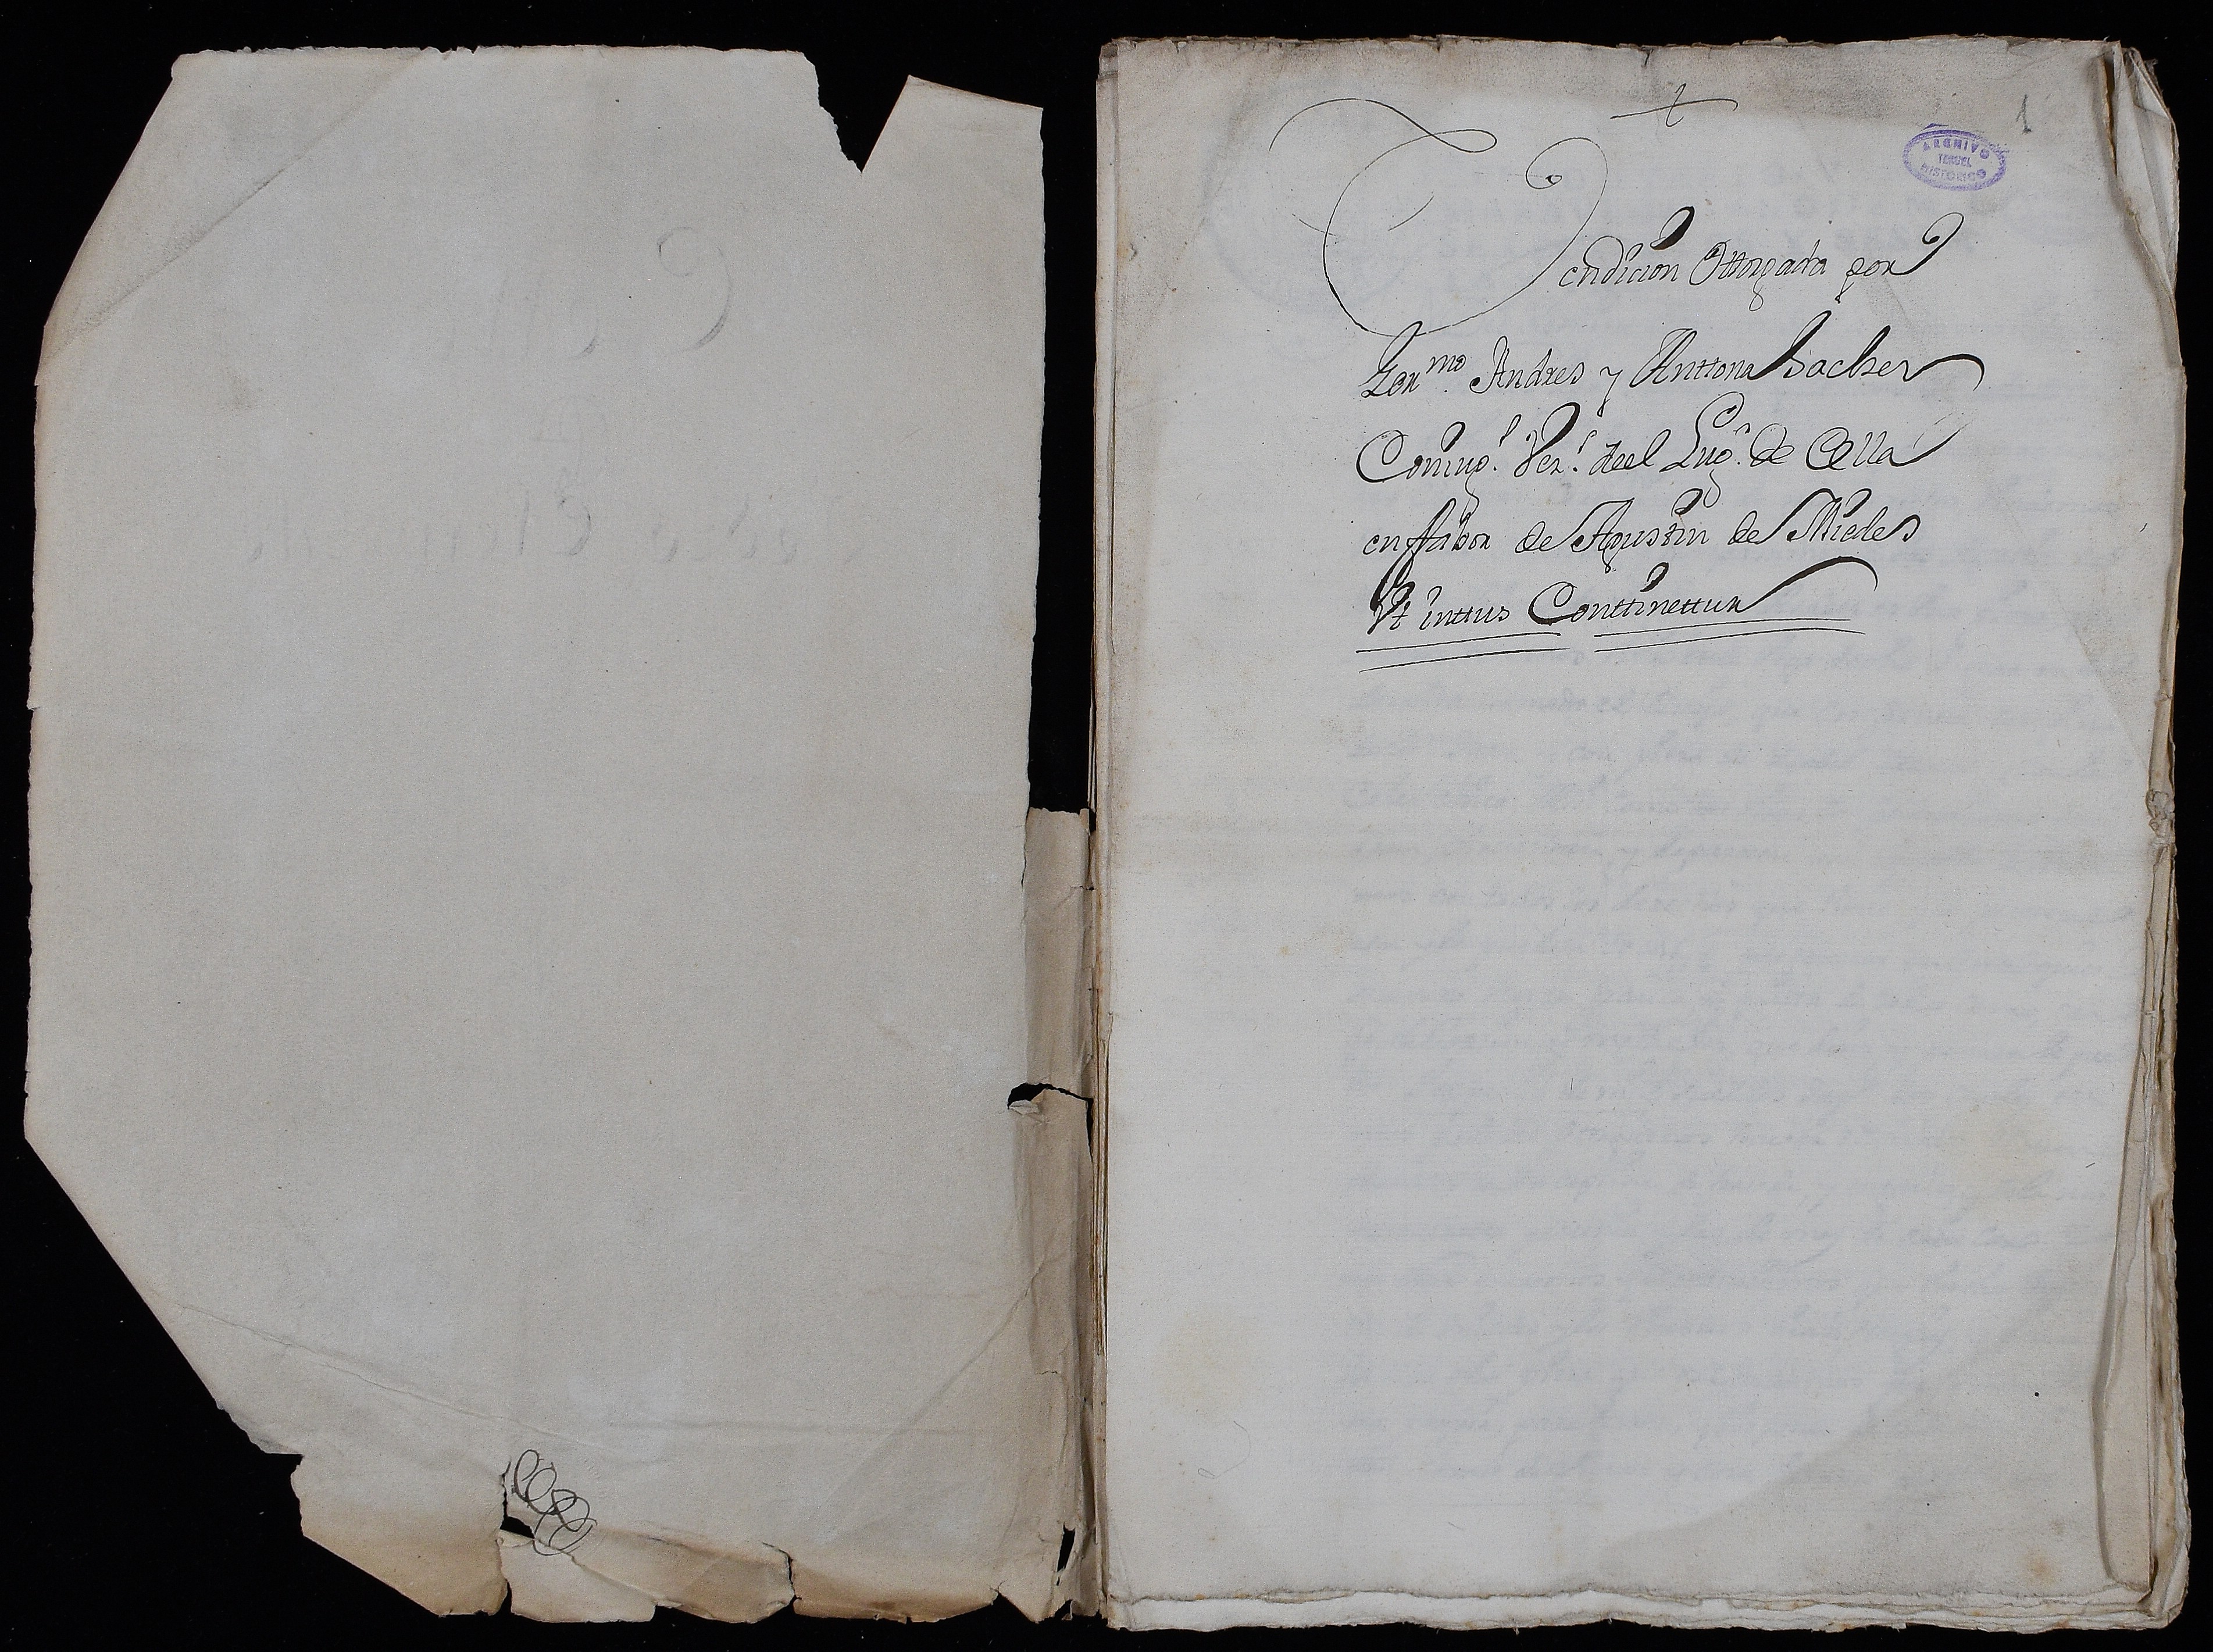 1
ARCHIVO
TERUEL
HISTORICO
Vendicion Ottorgada por
Ger.mo Andres y Anttona
Conjug.s Vez.s deel Lug.r de Cella
en ffabor de Agustin de Miedes
Vt inttus Conttinettur